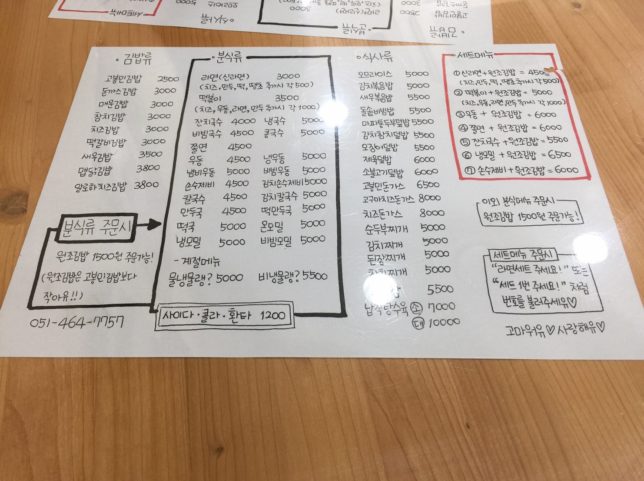 김밥류
고봉민김밥 2500
돈까스김밥 3000
매운김밥 3000
참치김밥 3000
치즈김밥 3000
떡갈비김밥 3000
새우김밥 3500
매운닭김밥 3800
알로하치김밥 3800
분식류 주문시
원조김밥 1500원 주문가능!
(원조김밥은 고봉민김밥보다
작아유!!)
051-464-7757
분식류
라면(신라면) 3000
(치즈, 만두, 떡, 땡초 추가시 각 500)
떡볶이 3500
(치즈, 우동, 라면, 만두 추가시 각 1000)
잔치국수 4000 냉국수 5000
비빔국수 4500 콩국수 5000
쫄면 4500
우동 4500 냉우동 5000
냄비우동 5000 비빔우동 5000
손수제비 4500 김치손수제비 5000
칼국수 4500 김치칼국수 5000
만두국 4500 떡만두국 5000
떡국 5000 온모밀 5000
냉모밀 5000 비빔모밀 5000
- 계절메뉴
물냉물래? 5000 비냉물래? 5500
사이다·콜라·환타 1200
식사류
오므라이스 5000
김치볶음밥 5000
새우볶음밥 5500
돌솥비빔밥 5500
마파두부덮밥 5500
김치참치덮밥 5500
오징어덮밥 5500
제육덮밥 6000
소불고기덮밥 6000
고봉민돈가스 6500
고구마치즈돈가스 8000
치즈돈가스 8000
순두부찌개 5000
김치찌개 5000
된장찌개 5000
5000
5500
탕수육 소 7000
대 10000
세트메뉴
① 신라면 + 원조김밥 = 4500
(치즈, 만두, 떡, 땡초 추가시 각 500)
② 떡볶이 + 원조김밥 = 5000
(치즈, 우동, 라면, 만두 추가시 각 1000)
③ 우동 + 원조김밥 = 6000
④ 쫄면 + 원조김밥 = 6000
⑤ 잔치국수 + 원조김밥 = 5500
⑥ 냉모밀 + 원조김밥 = 6500
⑦ 손수제비 + 원조김밥 = 6000
이외 분식메뉴 주문시
원조김밥 1500원 주문가능!
세트메뉴 주문시
"라면세트 주세요!" 또는
"세트 1번 주세요!" 처럼
번호를 불러주세유♡
고마워유♡ 사랑해유♡